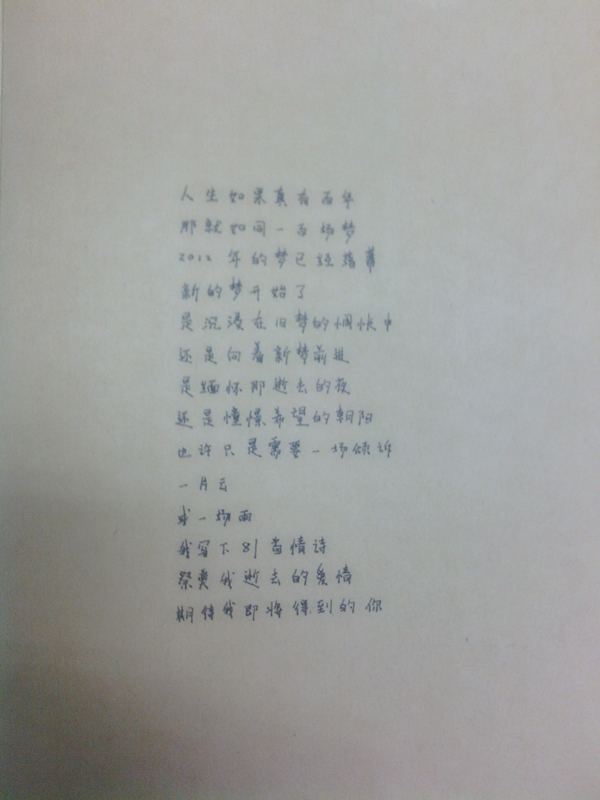 人生如果真有百年
那就如同一百场梦
2012年的梦已经落幕
新的梦开始了
是沉浸在旧梦的惆怅中
还是向着新梦前进
是缅怀那逝去的夜
还是憧憬希望的朝阳
也许只是需要一场倾诉
一片云
或一场雨
我写下81首情诗
祭奠我逝去的爱情
期待我即将得到的你